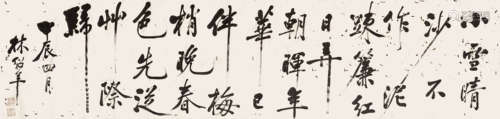 小雪晴
沙不
作泥
疎簾紅
日弄
朝暉年
華已
伴梅
梢晚春
色先從
艸際
歸
甲辰四月
林